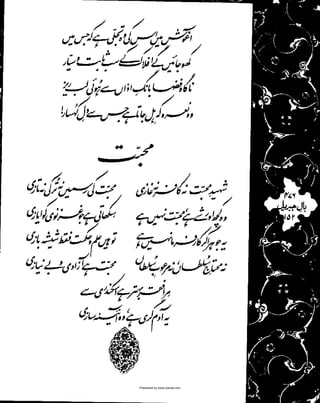 آغوش میں اس کی وہ تجلی ہے کہ جس میں
کھو جائیں گے افلاک کے سب ثابت و سیار
ناگاہ فضا بانگِ اذاں سے ہوئی لبریز
وہ نعرہ کہ ہل جاتا ہے جس سے دلِ کہسار!
محبّت
شہیدِ محبت نہ کافر نہ غازی محبت کی رسمیں نہ ترکی نہ تازی
وہ کچھ اور شے ہے محبت نہیں ہے سکھاتی ہے جو غزنوی کو ایازی
یہ جوہر اگر کارفرما نہیں ہے تو ہیں علم و حکمت فقط شیشہ بازی
نہ محتاجِ سلطاں نہ مرعوبِ سلطاں محبت ہے آزادی و بے نیازی
مرا فقر بہتر ہے اسکندری سے
یہ آدم گری ہے وہ آئینہ سازی
۴۷۶
بالِ جبریل
۱۵۲